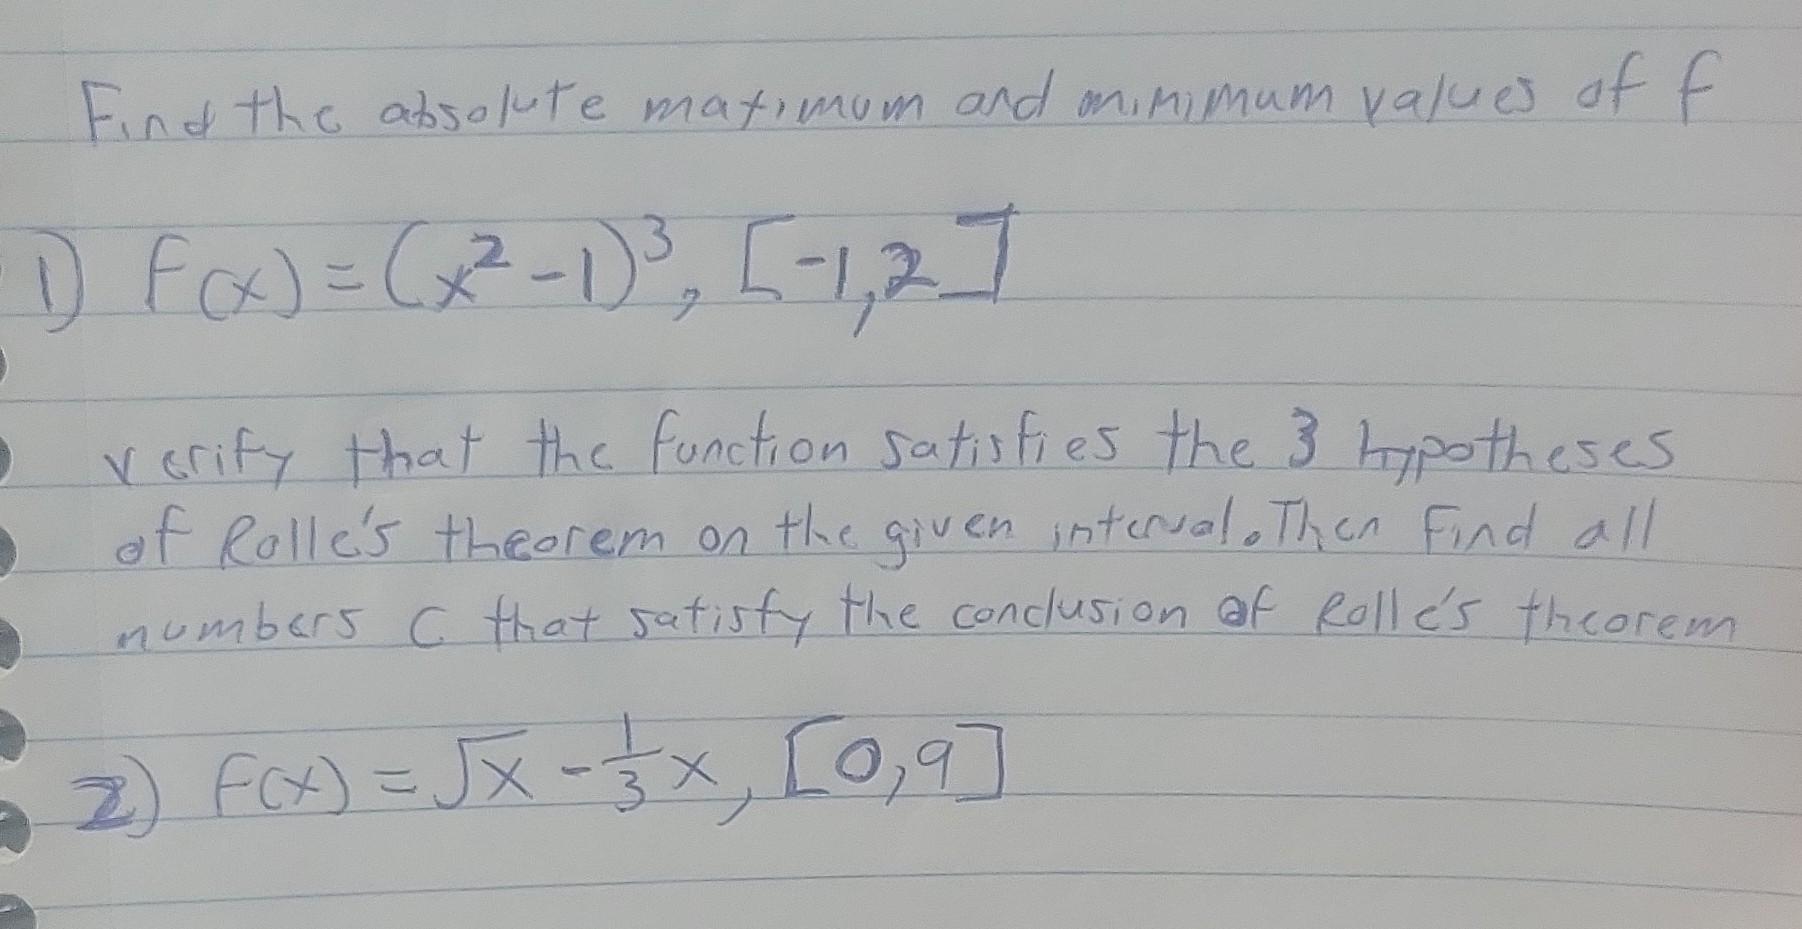 Find the absolute maximum and minimum values of f
1) f(x) = (x² - 1)³, [-1,2]
verify that the function satisfies the 3 hypotheses
of Rolle's theorem on the given interval. Then find all
numbers C that satisfy the conclusion of Rolle's theorem
2) f(x) = √x - 1/3 x, [0,9]